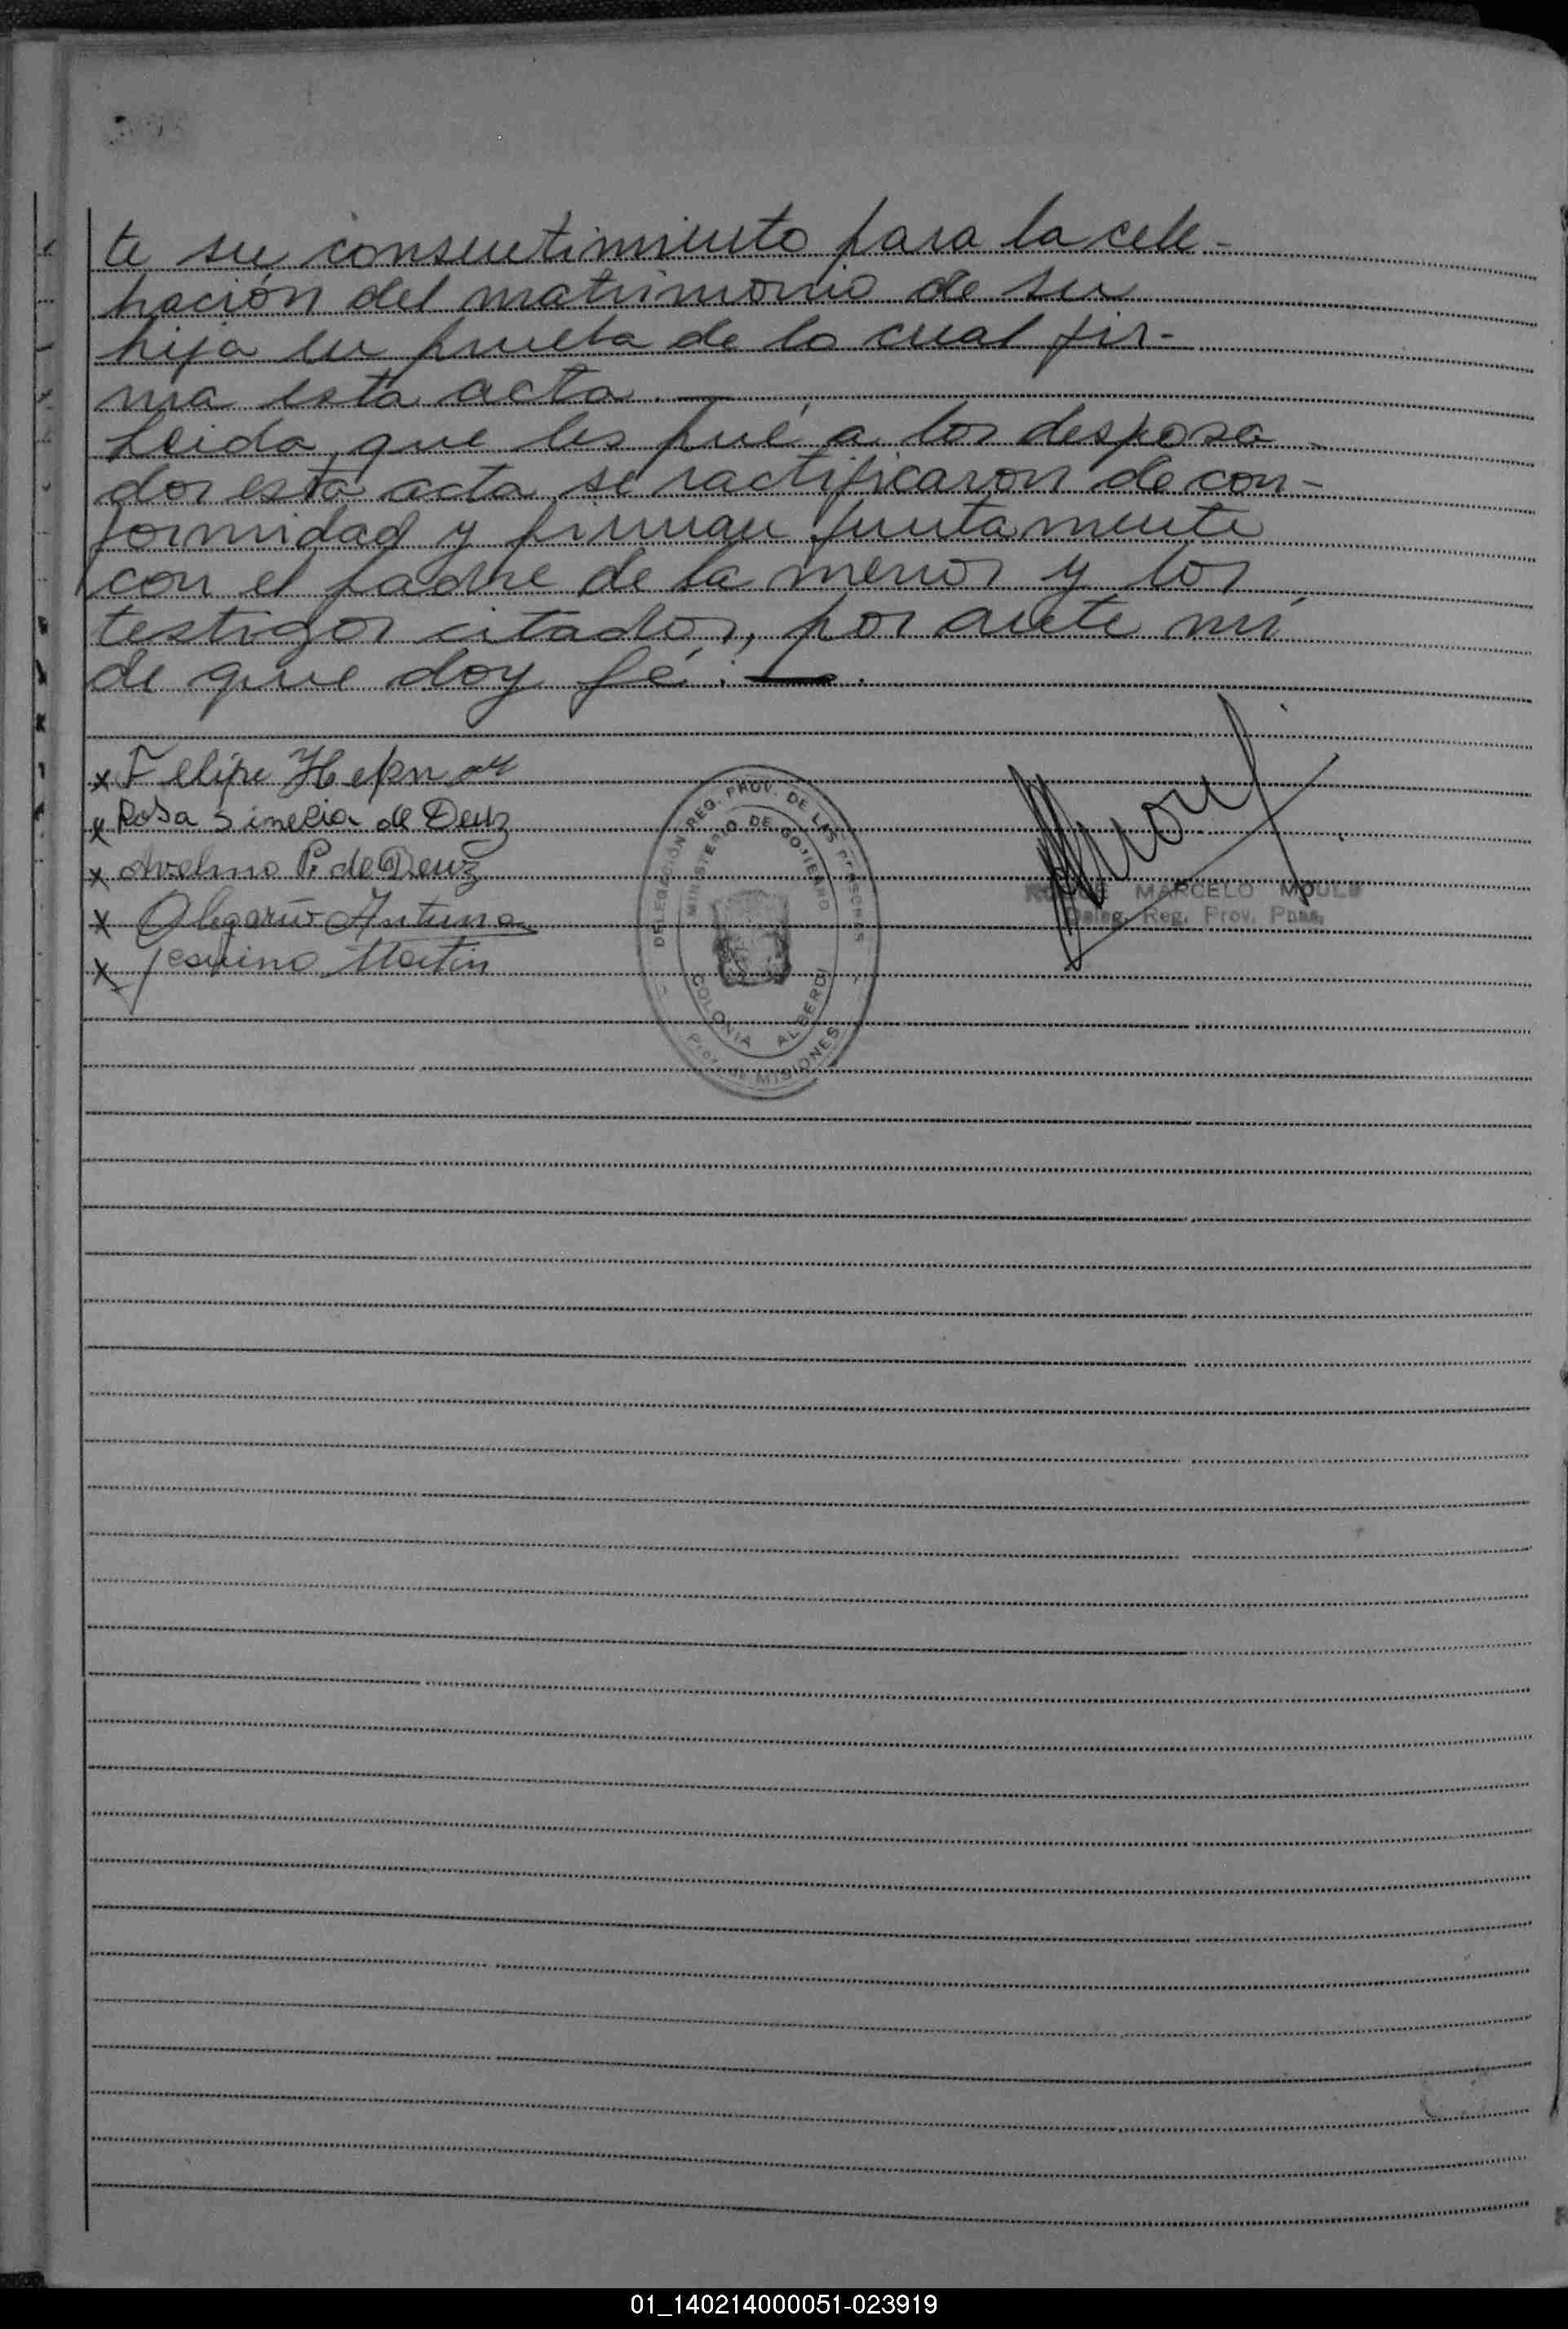 te su consentimiento para la cele-
bración del matrimonio de su
hija en prueba de lo cual fir-
ma esta acta.—
Leida que les fué a los desposa-
dos esta acta se ractificaron de con-
formidad y firman juntamente
con el padre de la menor y los
testigos citados, por ante mí
de que doy fé.—.
x Felipe
x Rosa Simelia de Deuz
x Avelino P. de Deuz
x Olegario Antunes
x Martin
DELEGACIÓN REG. PROV. DE LAS PERSONAS
MINISTERIO DE GOBIERNO
COLONIA ALBERDI
Prov. de MISIONES
MARCELO MOULE
Deleg. Reg. Prov. Pnas.
01_140214000051-023919